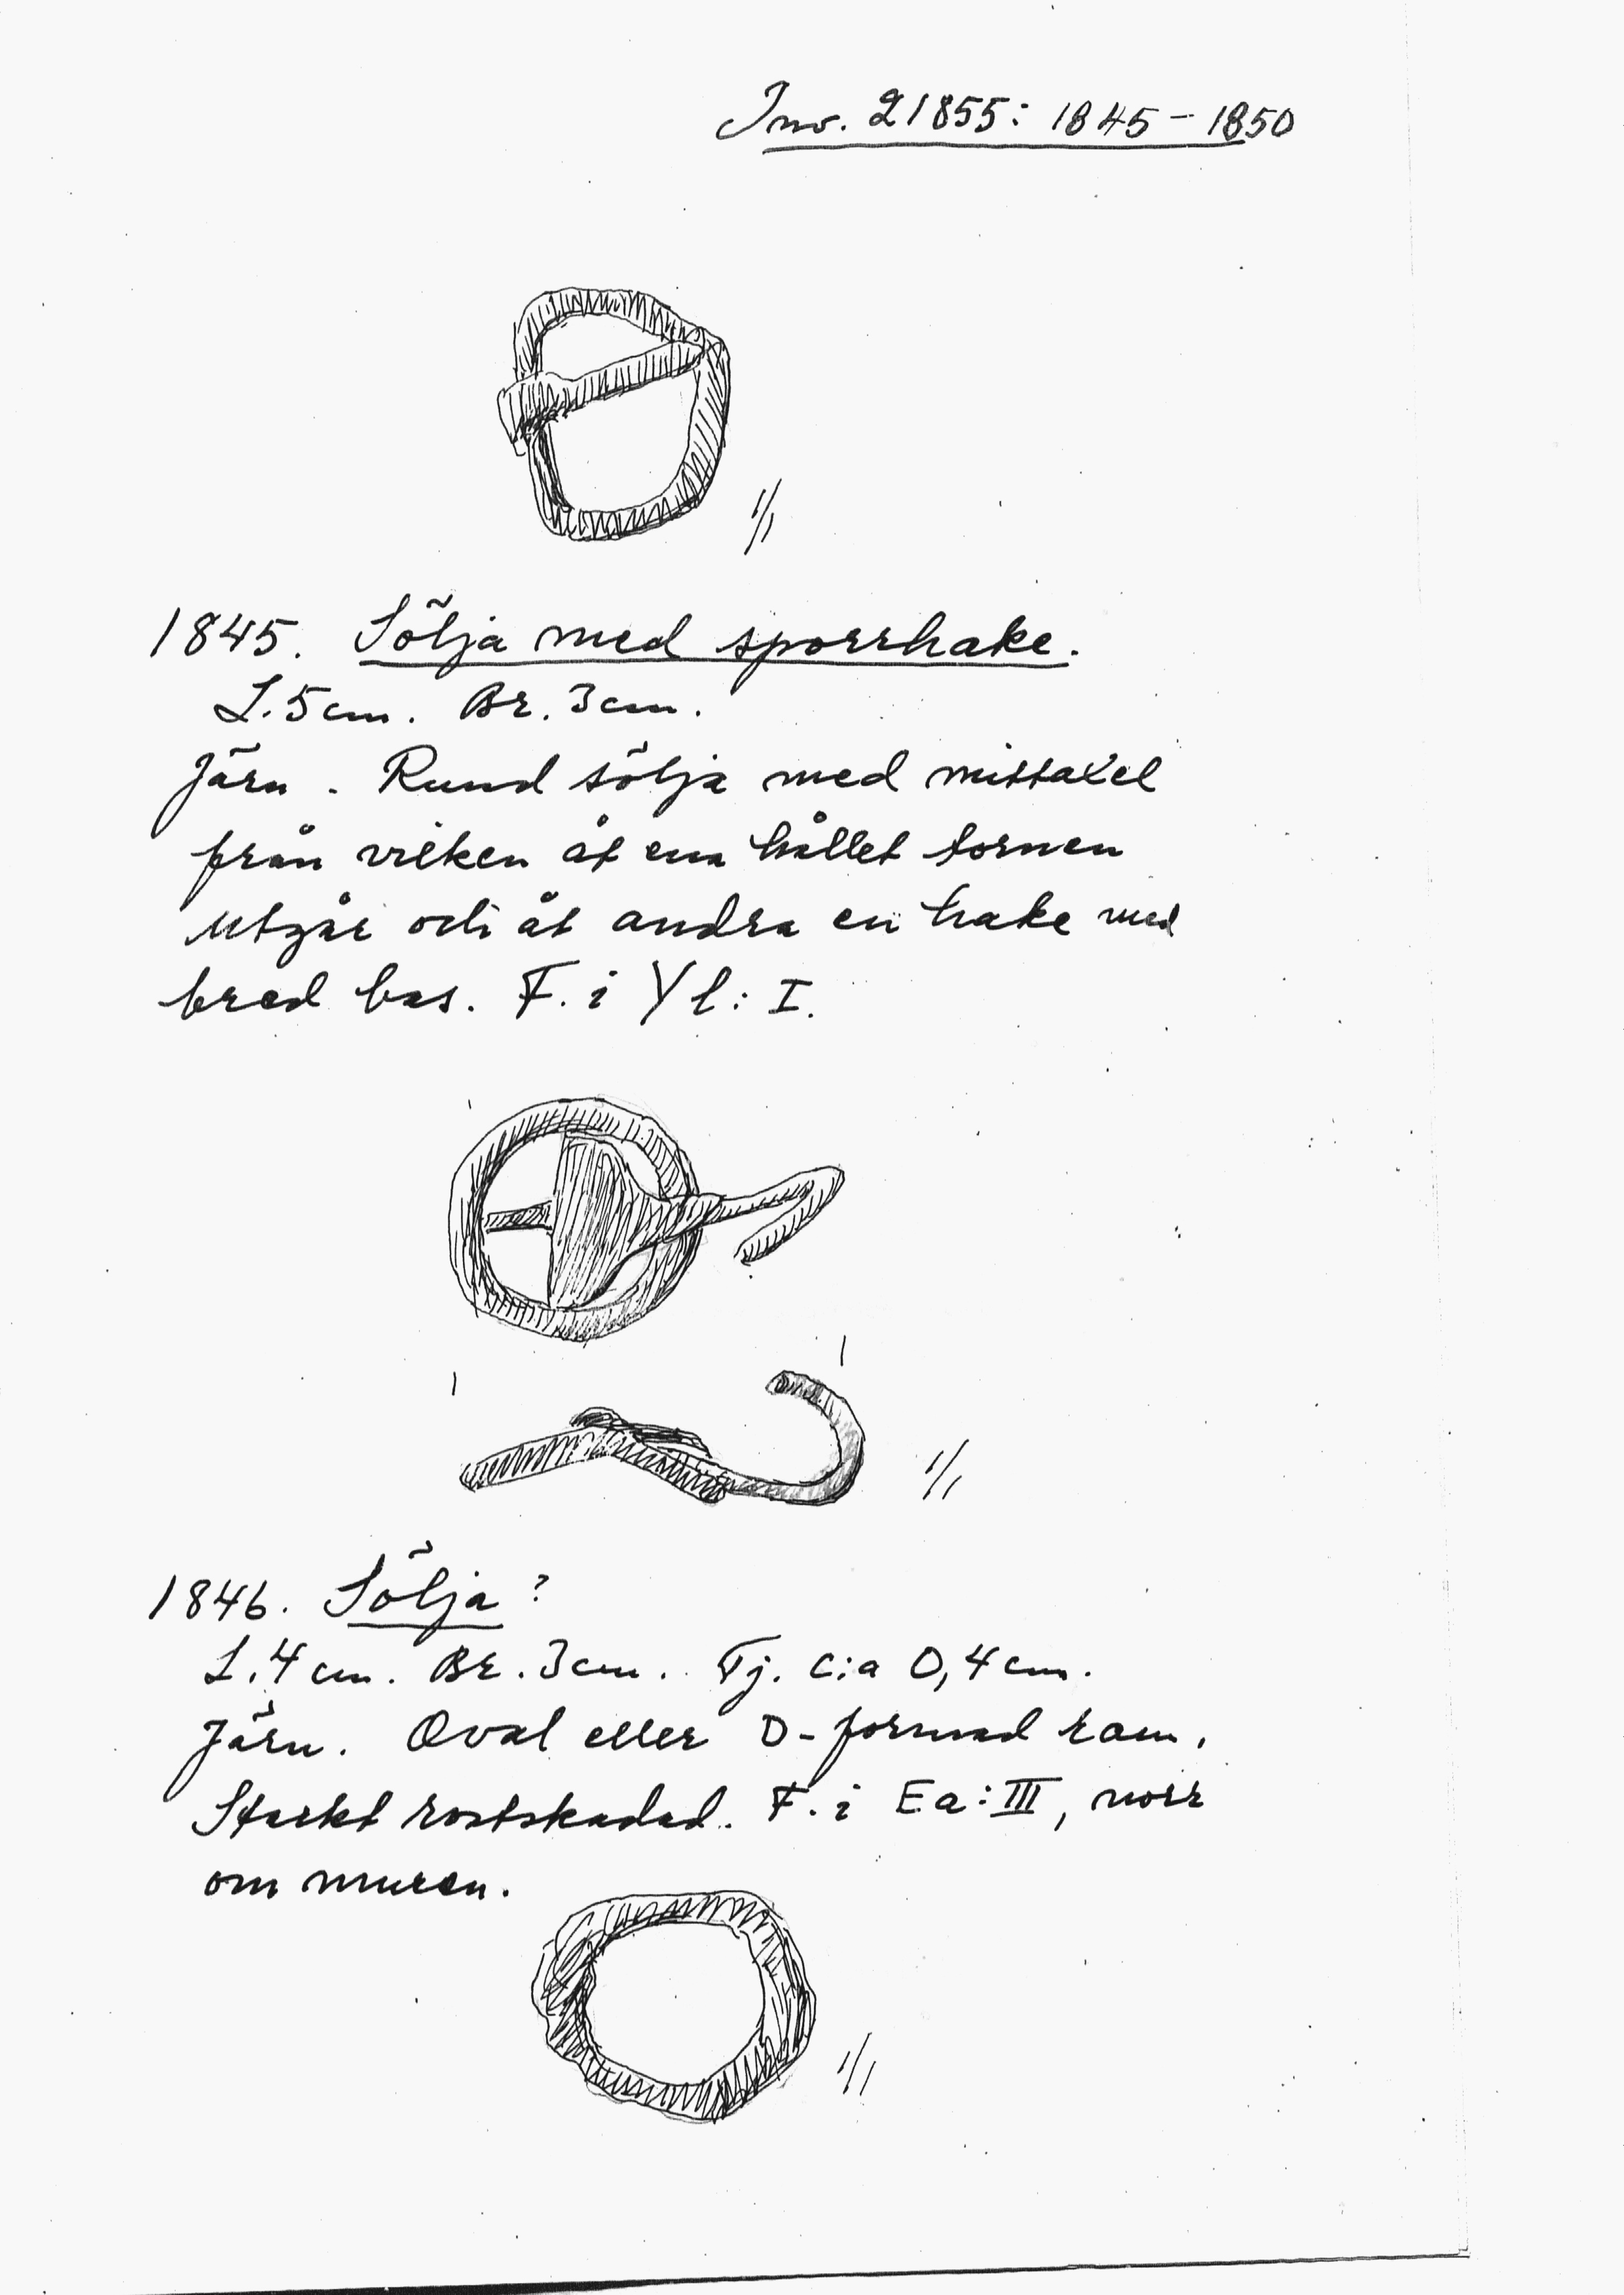 Inv. 21855: 1845-1850
1/1
1845. Sölja med sporrhake.
L. 5 cm. Br. 3 cm.
Järn. Rund sölja med mittaxel
från vilken åt ena hållet tornen
utgår och åt andra en hake med
bred bas. F. i Yl: I.
1/1
1846. Sölja?
L. 4 cm. Br. 3 cm. Tj. c:a 0,4 cm.
Järn. Oval eller D-formad ram.
Starkt rostskadad. F. i Ea: III, norr
om muren.
1/1